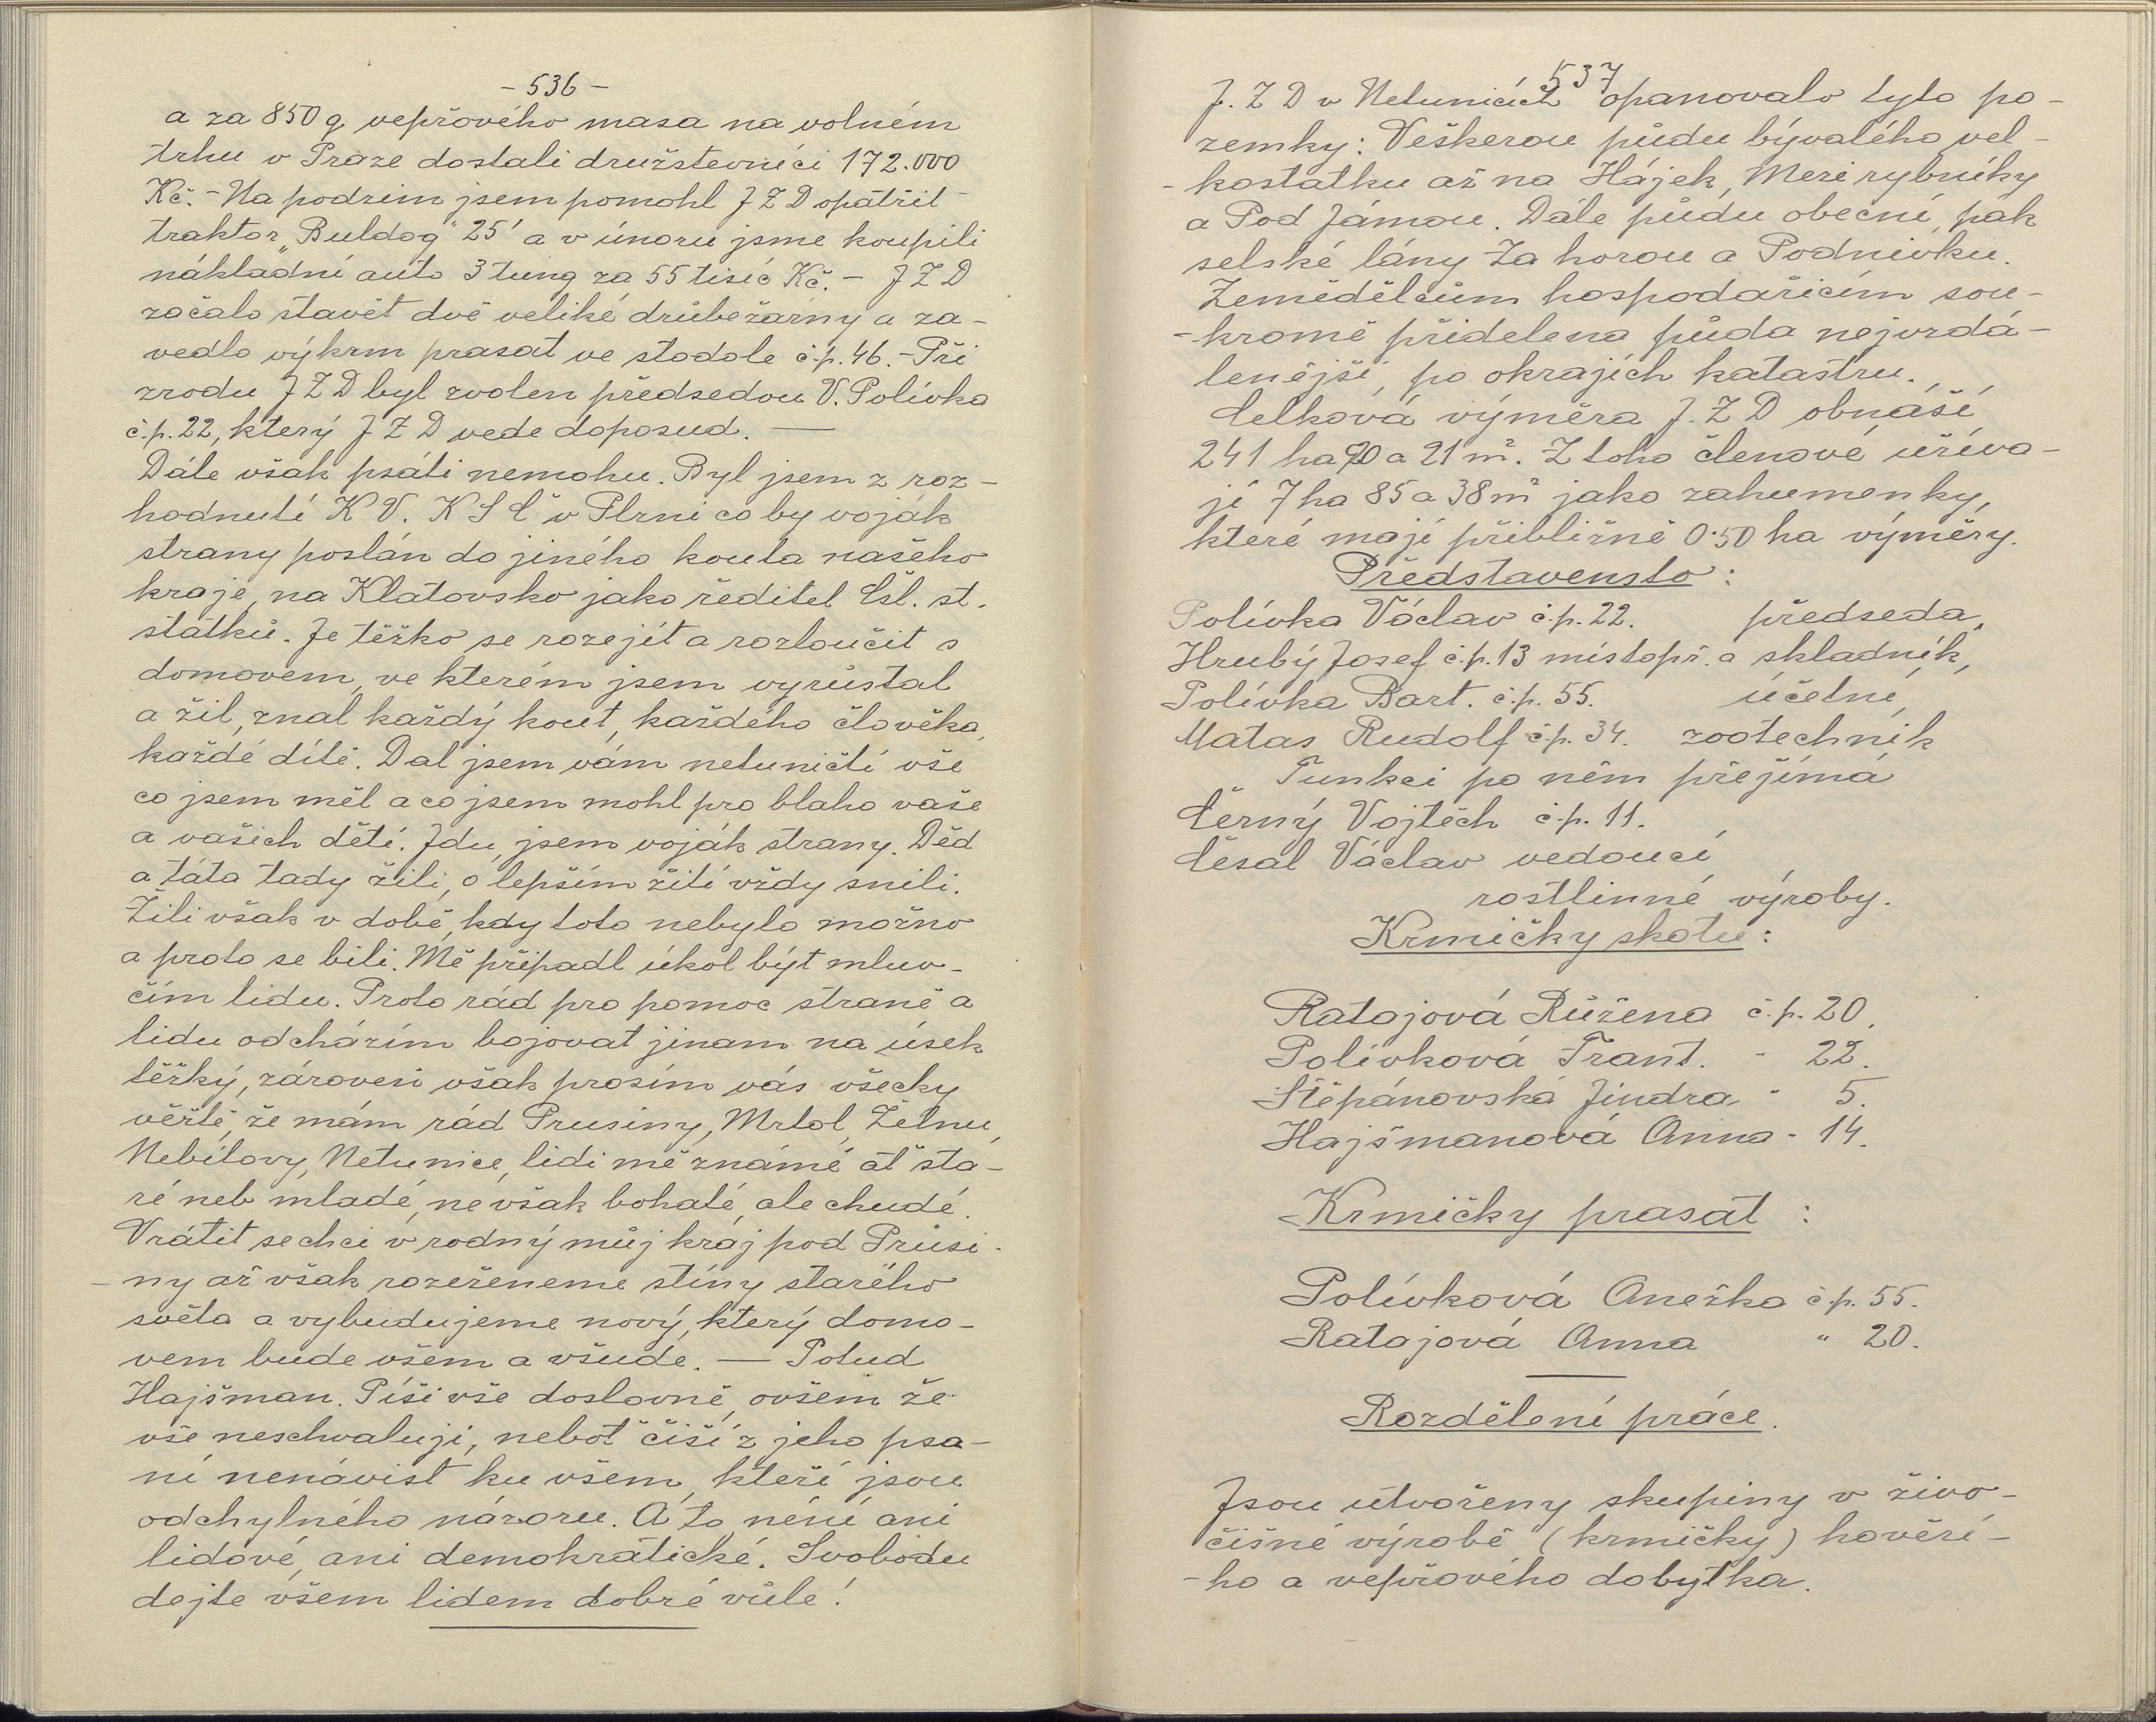 - 536 -
a za 850 q vepřového masa na volném
trhu v Praze dostali družstevníci 172.000
Kč.- Na podzim jsem pomohl J Z D opatřit
traktor „Buldog" 25' a v únoru jsme koupili
nákladní auto 3 tung za 55 tisíc Kč. - J Z D
začalo stavět dvě veliké drůbežárny a za-
vedlo výkrm prasat ve stodole č.p. 46. - Při
zrodu J Z D byl zvolen předsedou V. Polívka
č.p. 22, který J Z D vede doposud. —
Dále však psáti nemohu. Byl jsem z roz-
hodnutí K V. K S Č v Plzni co by voják
strany poslán do jiného kouta našeho
kraje, na Klatovsko jako ředitel Čsl. st.
statků. Je těžko se rozejít a rozloučit s
domovem, ve kterém jsem vyrůstal
a žil, znal každý kout, každého člověka,
každé dítě. Dal jsem vám netuničtí vše
co jsem měl a co jsem mohl pro blaho vaše
a vašich dětí. Jdu, jsem voják strany. Děd
a táta tady žili, o lepším žití vždy snili.
Žili však v době, kdy toto nebylo možno
a proto se bili. Mě připadl úkol být mluv-
čím lidu. Proto rád pro pomoc straně a
lidu odcházím bojovat jinam na úsek
těžký, zároveň však prosím vás všecky
věřte, že mám rád Prusiny, Mrtol, Želnu,
Nebílovy, Netunice, lidi mě známé ať sta-
ré neb mladé, ne však bohaté, ale chudé.
Vrátit se chci v rodný můj kraj pod Prusi-
- ny až však rozeženeme stíny starého
světa a vybudujeme nový, který domo-
vem bude všem a všude. — Potud
Hajšman. Píši vše doslovně, ovšem že
vše neschvaluji, neboť čiší z jeho psa-
ní nenávist ku všem, kteří jsou
odchylného názoru. A to není ani
lidové, ani demokratické. Svobodu
dejte všem lidem dobré vůle!
537
J. Z D v Netunicích opanovalo tyto po-
zemky: Veškerou půdu bývalého vel-
- kostatku až na Hájek, Mezi rybníky
a Pod Jámou. Dále půdu obecní, pak
selské lány Za horou a Podnivku.
Zemědělcům hospodařícím sou-
- kromě přidelena půda nejvzdá-
lenější, po okrajích katastru.
Celková výměra J. Z D obnáší
241 ha 20 a 21 m². Z toho členové užíva-
jí 7 ha 85 a 38 m² jako zahumenky,
které mají přibližně 0.50 ha výměry.
Představensto:
Polívka Václav č.p. 22. předseda,
Hrubý Josef č.p. 13 místopř. a skladník,
Polívka Bart. č.p. 55. účetní,
Matas Rudolf č.p. 34. zootechnik
Funkci po něm přejímá
Černý Vojtěch č.p. 11.
Česal Václav vedoucí
rostlinné výroby.
Krmičky skotu:
Ratajová Růžena č.p. 20.
Polívková Frant. " 22.
Štěpánovská Jindra " 5.
Hajšmanová Anna " 14.
Krmičky prasat :
Polívková Anežka č.p. 55.
Ratajová Anna " 20.
Rozdělení práce.
Jsou utvořeny skupiny v živo-
čišné výrobě (krmičky) hovězí-
- ho a vepřového dobytka.